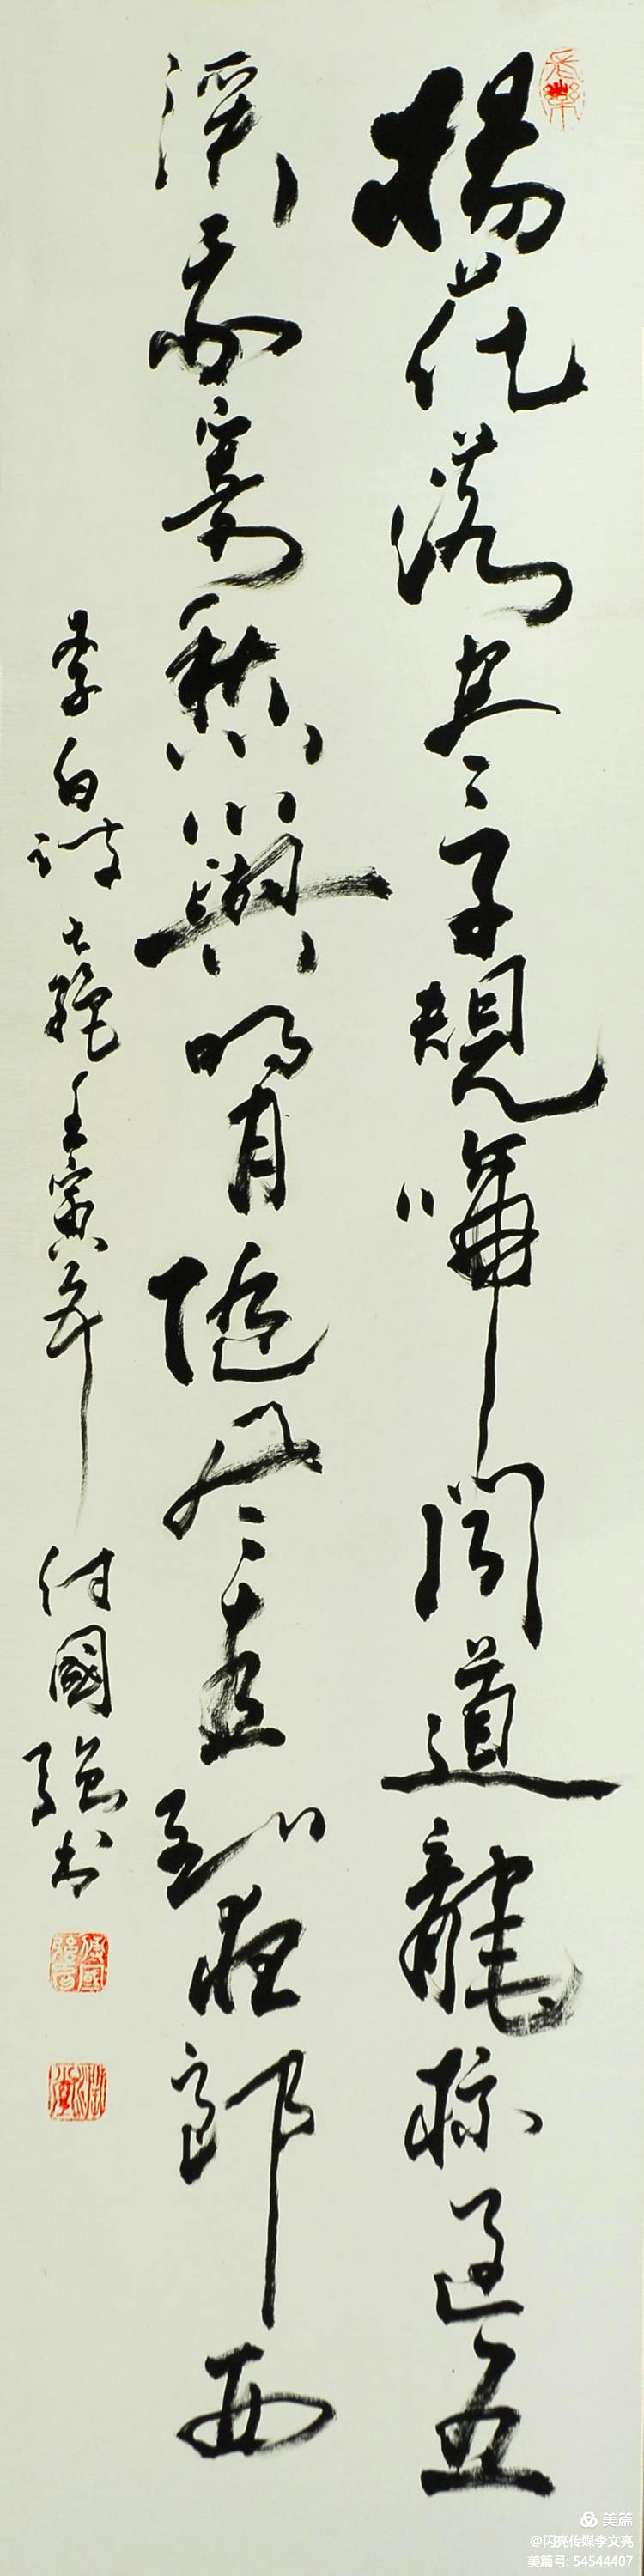 楊花落尽子規啼聞道龍標過五
溪我寄愁心與明月隨風直到夜郎西
李白詩七絕壬寅年付國強書
美篇
@闪亮传媒李文亮
美篇号: 54544407